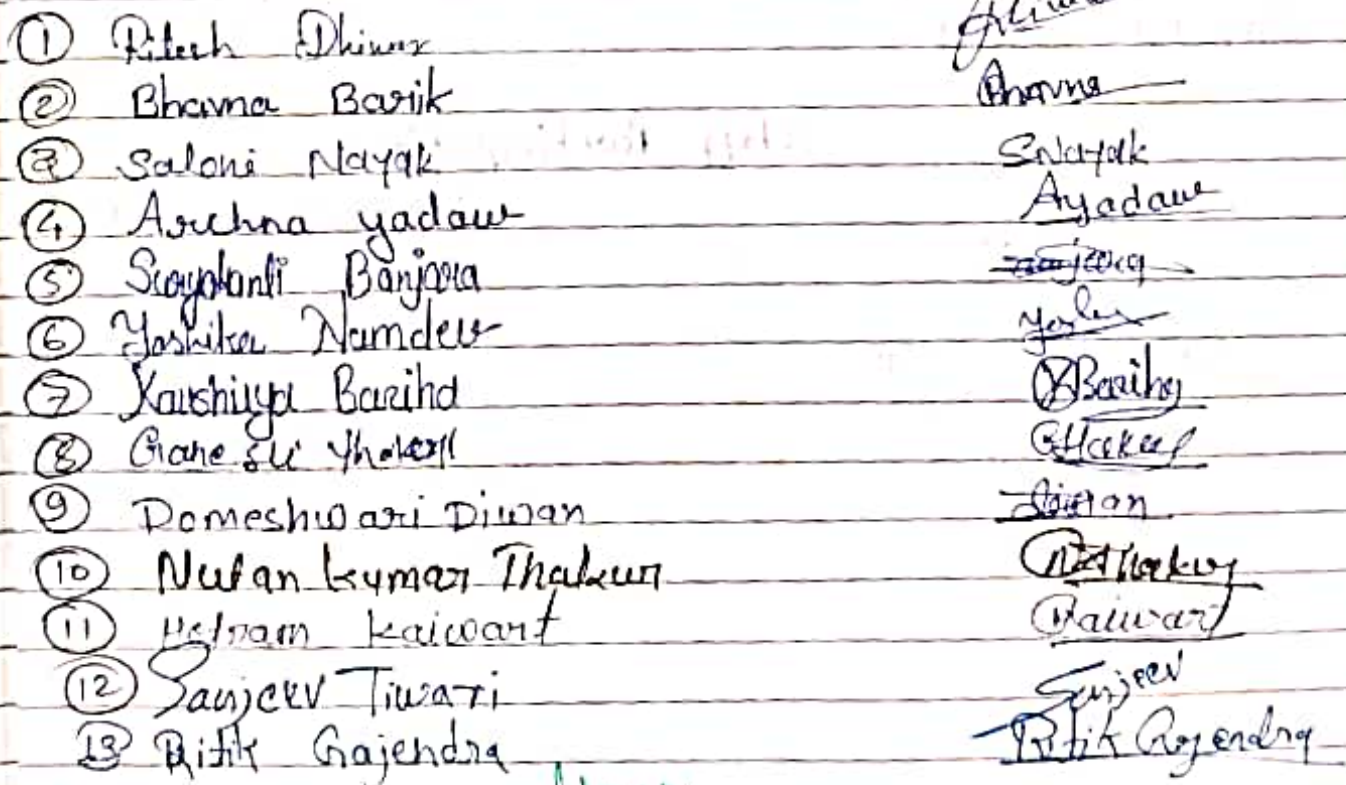 ① Ritesh Dhiwar
② Bhavna Barik Bhavna
③ Saloni Nayak SNayak
④ Archna yadaw Ayadaw
⑤ Banjara
⑥ Yashika Namdev
⑦ Kaushilya Bariha KBariha
⑧ Thakur GThakur
⑨ Domeshwari Diwan Diwan
⑩ Nutan kumar Thakur NKThakur
⑪ Kaiwart Kaiwart
⑫ Sanjeev Tiwari Sanjeev
13 Ritik Gajendra Ritik Gajendra